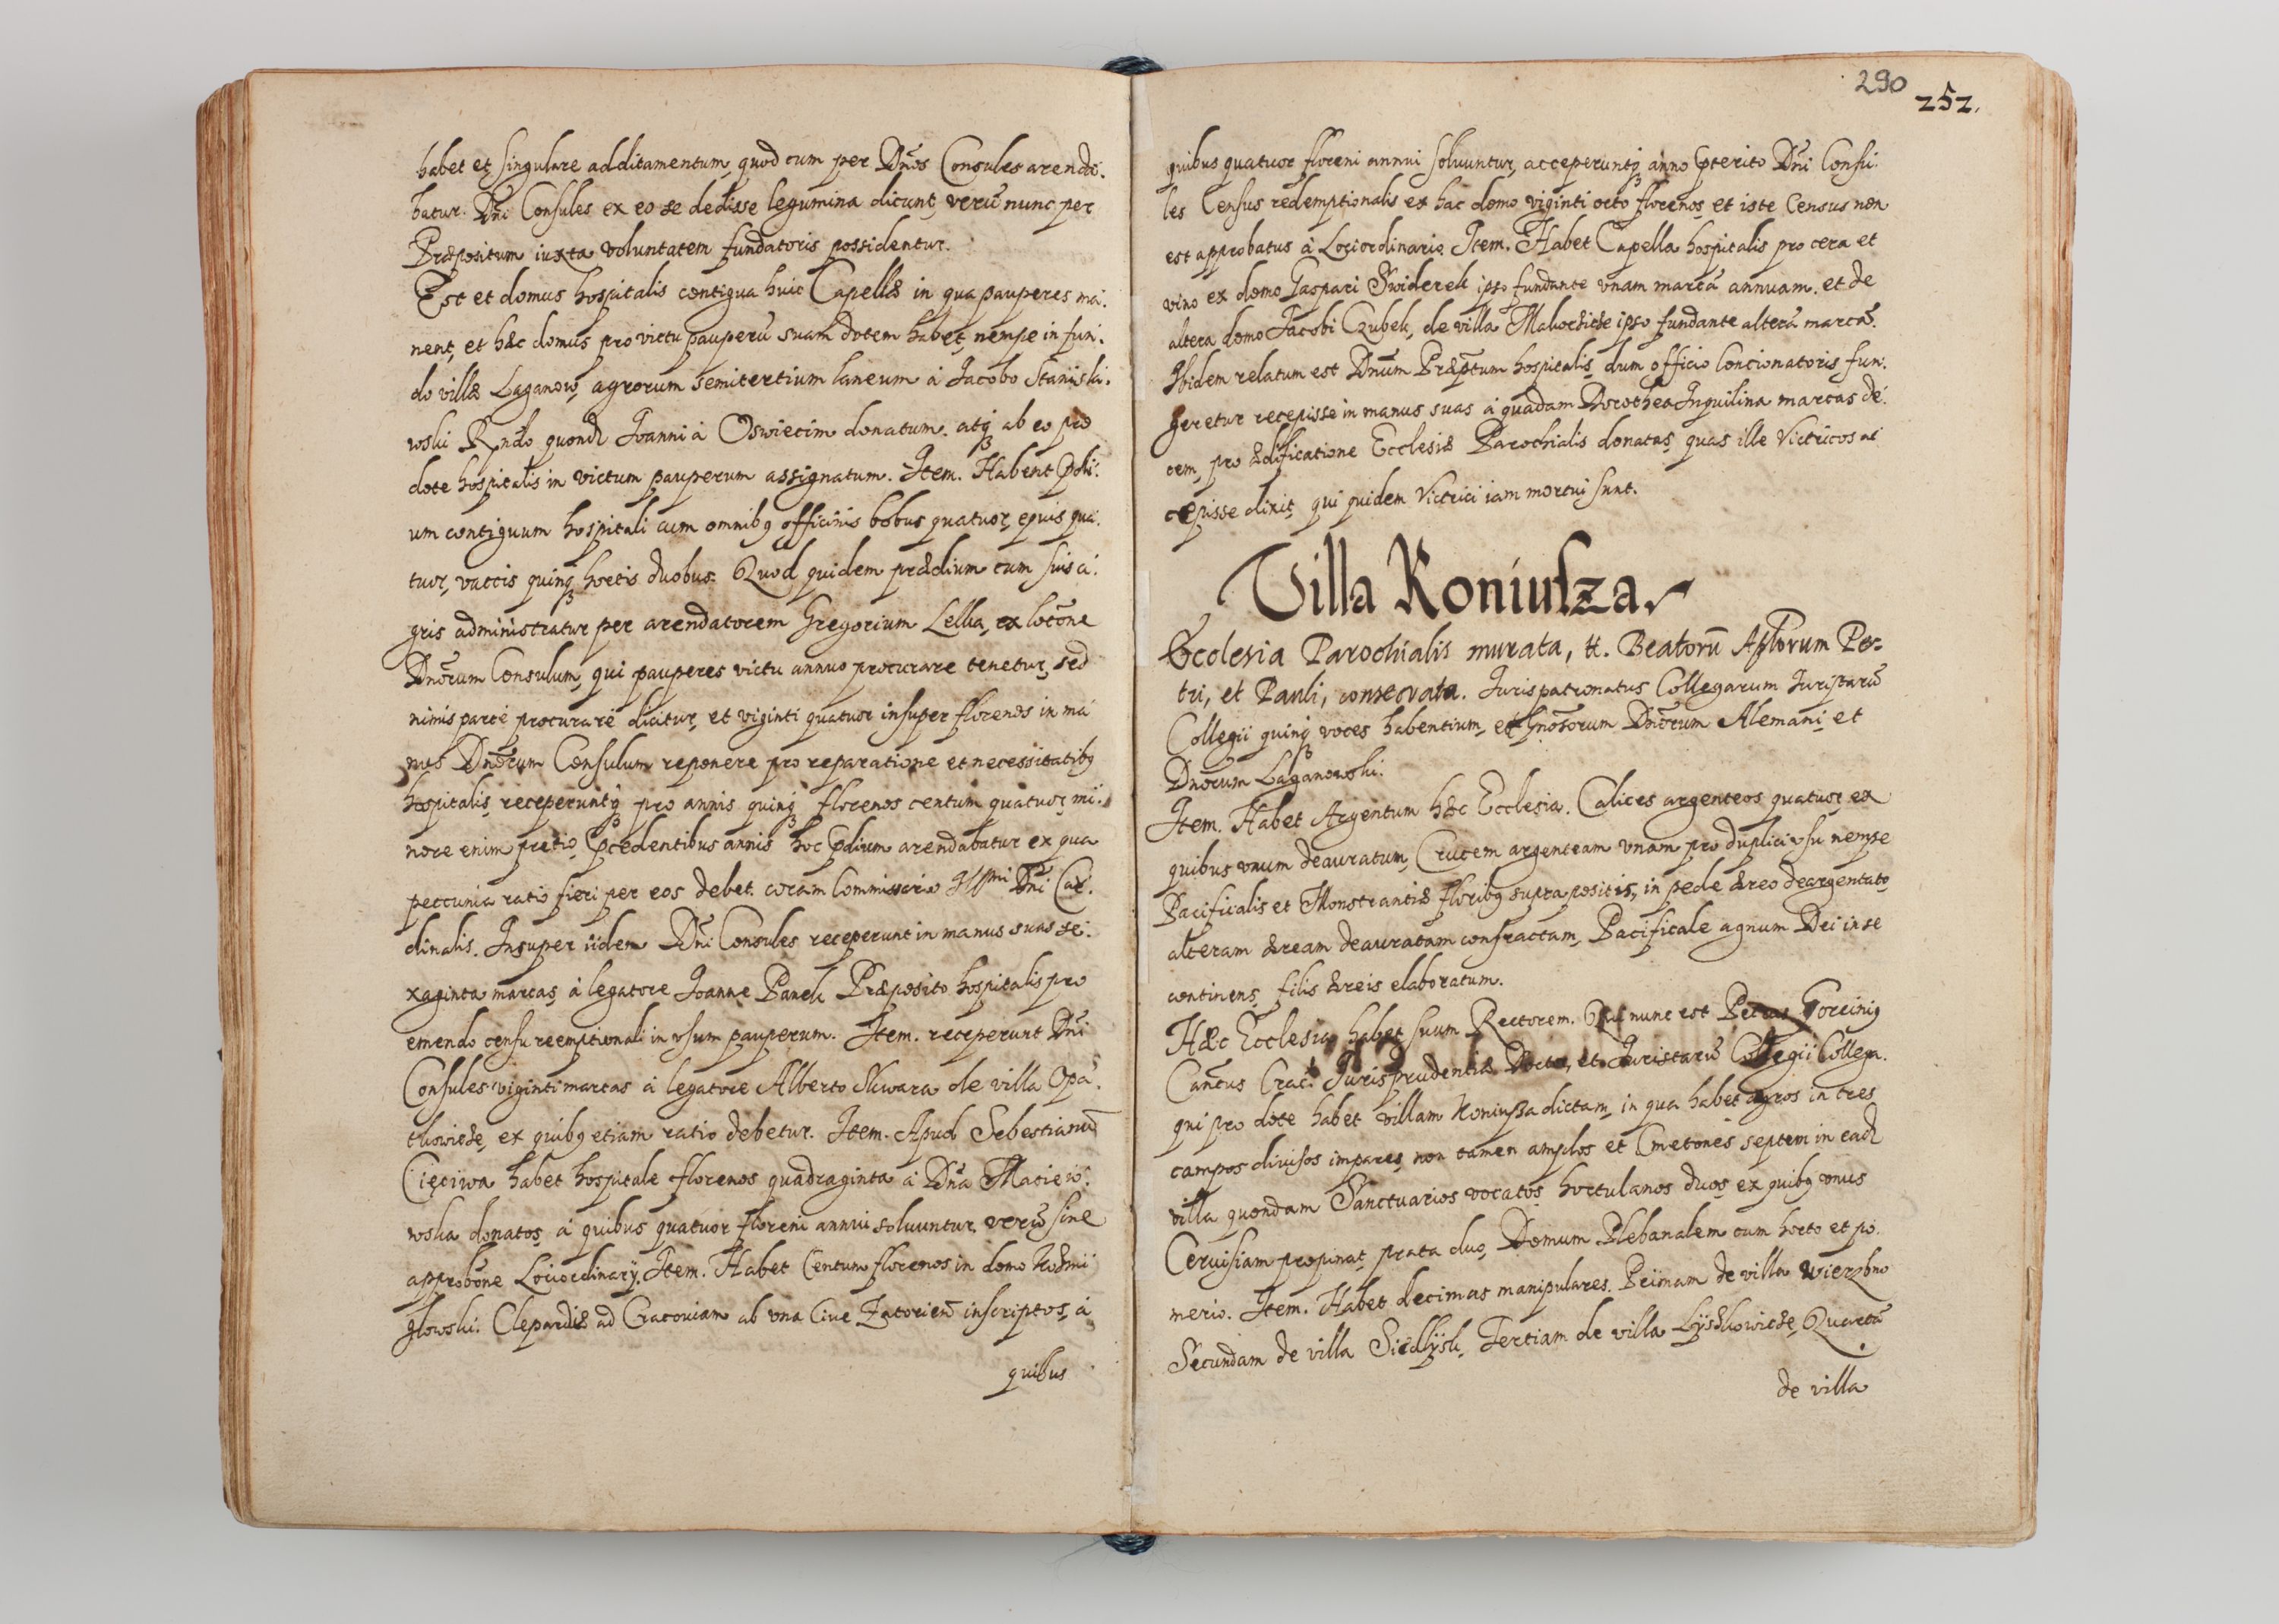 habet et singulare additamentum, quod cum per Dños Consules arenda-
batur. Dñi Consules ex eo se dedisse legumina dicunt, verũ nunc per
Præpositum iuxta voluntatem fundatoris possidentur.
Est et domus hospitalis contigua huic Capellæ in qua pauperes ma-
nent, et hæc domus pro victu pauperũ suam dotem habet, nempe in fun-
do villæ Laganow, agrorum semitertium laneum à Jacobo Stanisła-
wski Rñdo quond Joanni à Oswiecim donatum. atq ab eo pro
dote hospitalis in victum pauperum assignatum. Item. Habent pdi-
um contiguum hospitali cum omnibq officinis bobus quatuor, equis qua-
tuor, vaccis quinq hortis duobus. Quod quidem prædium cum suis a-
gris administratur per arendatorem Gregorium Lelka, ex locõne
Dñorum Consulum, qui pauperes victu annuo procurare tenetur, sed
nimis parcè procurare dicitur, et viginti quatuor insuper florenos in ma
nus Dñorum Consulum reponere pro reparatione et necessitatibq
hospitalis receperuntq pro annis quinq florenos centum quatuor, mi-
nore enim pretio pcedentibus annis hoc pdium arendabatur ex qua
peccunia ratio fieri per eos debet. coram Commissario Illmi Dñi Car-
dinalis. Insuper iidem Dñi Consules receperunt in manus suas se-
xaginta marcas, à legatore Joanne Panek Præposito hospitalis pro
emendo censu reemptionali in vsum pauperum. Item. receperunt Dñi
Consules viginti marcas à legatore Alberto Skwara de villa Opa-
tkowicze, ex quibq etiam ratio debetur. Item. Apud Sebestianũ
Cięciwa habet hospitale florenos quadraginta à Dña Maciew-
wska donatos, à quibus quatuor floreni annui soluuntur. verũ sine
approbõne Lociordinarij. Item. Habet Centum florenos in domo
Głowski. Clepardiæ ad Cracouiam ab vna Ciue Zatorień inscriptos, à
quibus
290
252.
quibus quatuor floreni annui soluuntur, acceperuntq anno pterito Dñi Consu-
les Census redemptionalis ex hac domo viginti octo florenos, et iste Census non
est approbatus à Lociordinario. Item. Habet Capella hospitalis pro cera et
vino ex domo Gaspari Swiderek ipso fundante vnam marcã annuam. et de
altera domo Jacobi Czubek, de villa Makocicze ipso fundante alterã marcã.
Ibidem relatum est Dñum Præptum hospitalis, dum officio Concionatoris fun-
geretur recepisse in manus suas à quadam Dorothea Inquilina marcas de-
cem, pro ædificatione Ecclesiæ Parochialis donatas, quas ille Victricos ac
cepisse dixit, qui quidem Victrici iam mortui sunt.
Villa Koniusza
Ecclesia Parochialis murata, tt. Beatorũ Aplorum Pe-
tri, et Pauli, consecrata. Jurispatronatus Collegarum Juristarũ
Collegii quinq voces habentium, et Gñosorum Dñorum Alemani, et
Dñorum Laganowski.
Item. Habet Argentum hæc Ecclesia. Calices argenteos quatuor, ex
quibus vnum deauratum, Crucem argenteam vnam pro duplici vsu nempe
Pacificalis et Monstrantiæ floribq supra positis, in pede æreo deargentato
alteram æream deauratam confractam, Pacificale agnum Dei in se
continens, filis æreis elaboratum.
Hæc Ecclesia habet suum Rectorem. Qui nunc est Petrus Goreiniq
Canćus Crac. Jurisprudentiæ Doctor, et Juristarũ Collegii Collega.
qui pro dote habet villam Koniussa dictam, in qua habet agros in tres
campos diuisos impares, non tamen amplos et Cmetones septem in ead
villa quondam Sanctuarios vocatos hortulanos duos, ex quibq vnus
Ceruisiam propinat, prata duo, Domum Plebanalem cum horto et po-
merio. Item. Habet decimas manipulares. Primam de villa Wierzbno
Secundam de villa Siedlysk, Tertiam de villa Lyszkowicze, Quartã
de villa